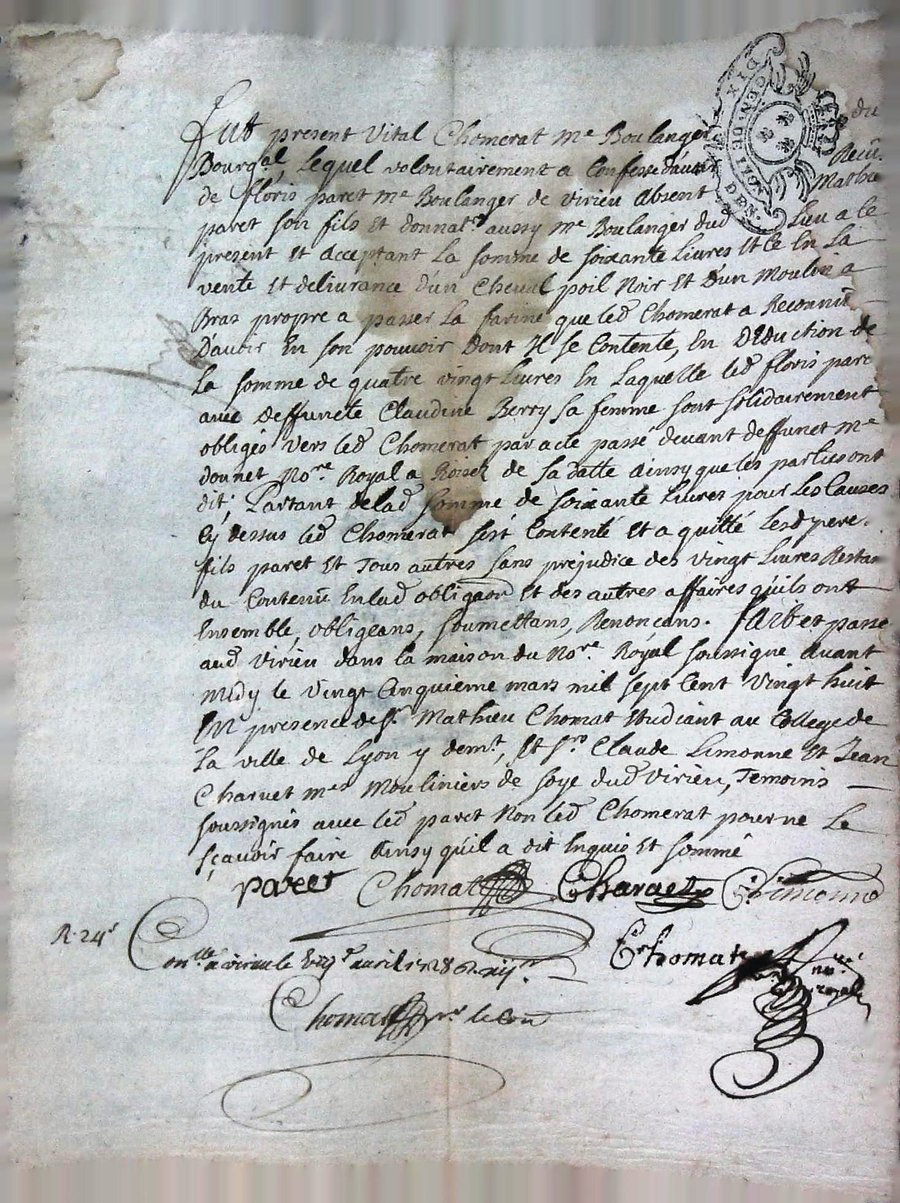 Fut present Vital Chomerat me Boulanger du
Bourgal, Lequel volontairement a Confessé d'avoir Receu
de floris paret me Boulanger de virieu absent Mathieu
paret son fils et donnatre aussy me Boulanger dud Lieu a ce
present et acceptant La somme de soixante Livres Et ce En La
vente et delivrance d'un Cheval poil Noir et d'un Moulin a
Bras propre a passer La farine que led Chomerat a Reconnu
D'avoir En son pouvoir Dont Il se Contente, En Déduction de
La somme de quatre vingt Livres En Laquelle led floris paret
avec Deffuncte Claudine Berry sa femme sont solidairement
obligés vers led Chomerat par acte passé devant deffunct me
donnet Nore Royal a de La ainsy que les parties ont
dit; Partant delad somme de soixante Livres pour Les Causes
Cy dessus led Chomerat s'est Contenté Et a quitté Lesd pere
fils paret et Tous autres sans prejudice des vingt Livres Restan
du Contenu En lad obligaon Et des autres affaires qu'ils ont
Ensemble, obligeans, soumettans, Renonçans. fait et passé
aud virieu dans la maison du Nore Royal soussigné avant
midy le vingt Cinquieme mars mil sept Cent vingt huit
En presence de sr Mathieu Chomat Etudiant au College de
La ville de Lyon y demt, Et sr Claude Limonne Et Jean
Charvet mes Mouliniers de soye dud virieu, Temoins
soussignés avec led paret Non led Chomerat pour ne Le
sçavoir faire Ainsy quil a dit Enquis Et sommé
paret Chomat Charvet C Limonne
R. 24s Conllé a virieu le avril 1728 Chomat nore royal
Chomat
DIX DEN. GEN. DE LION